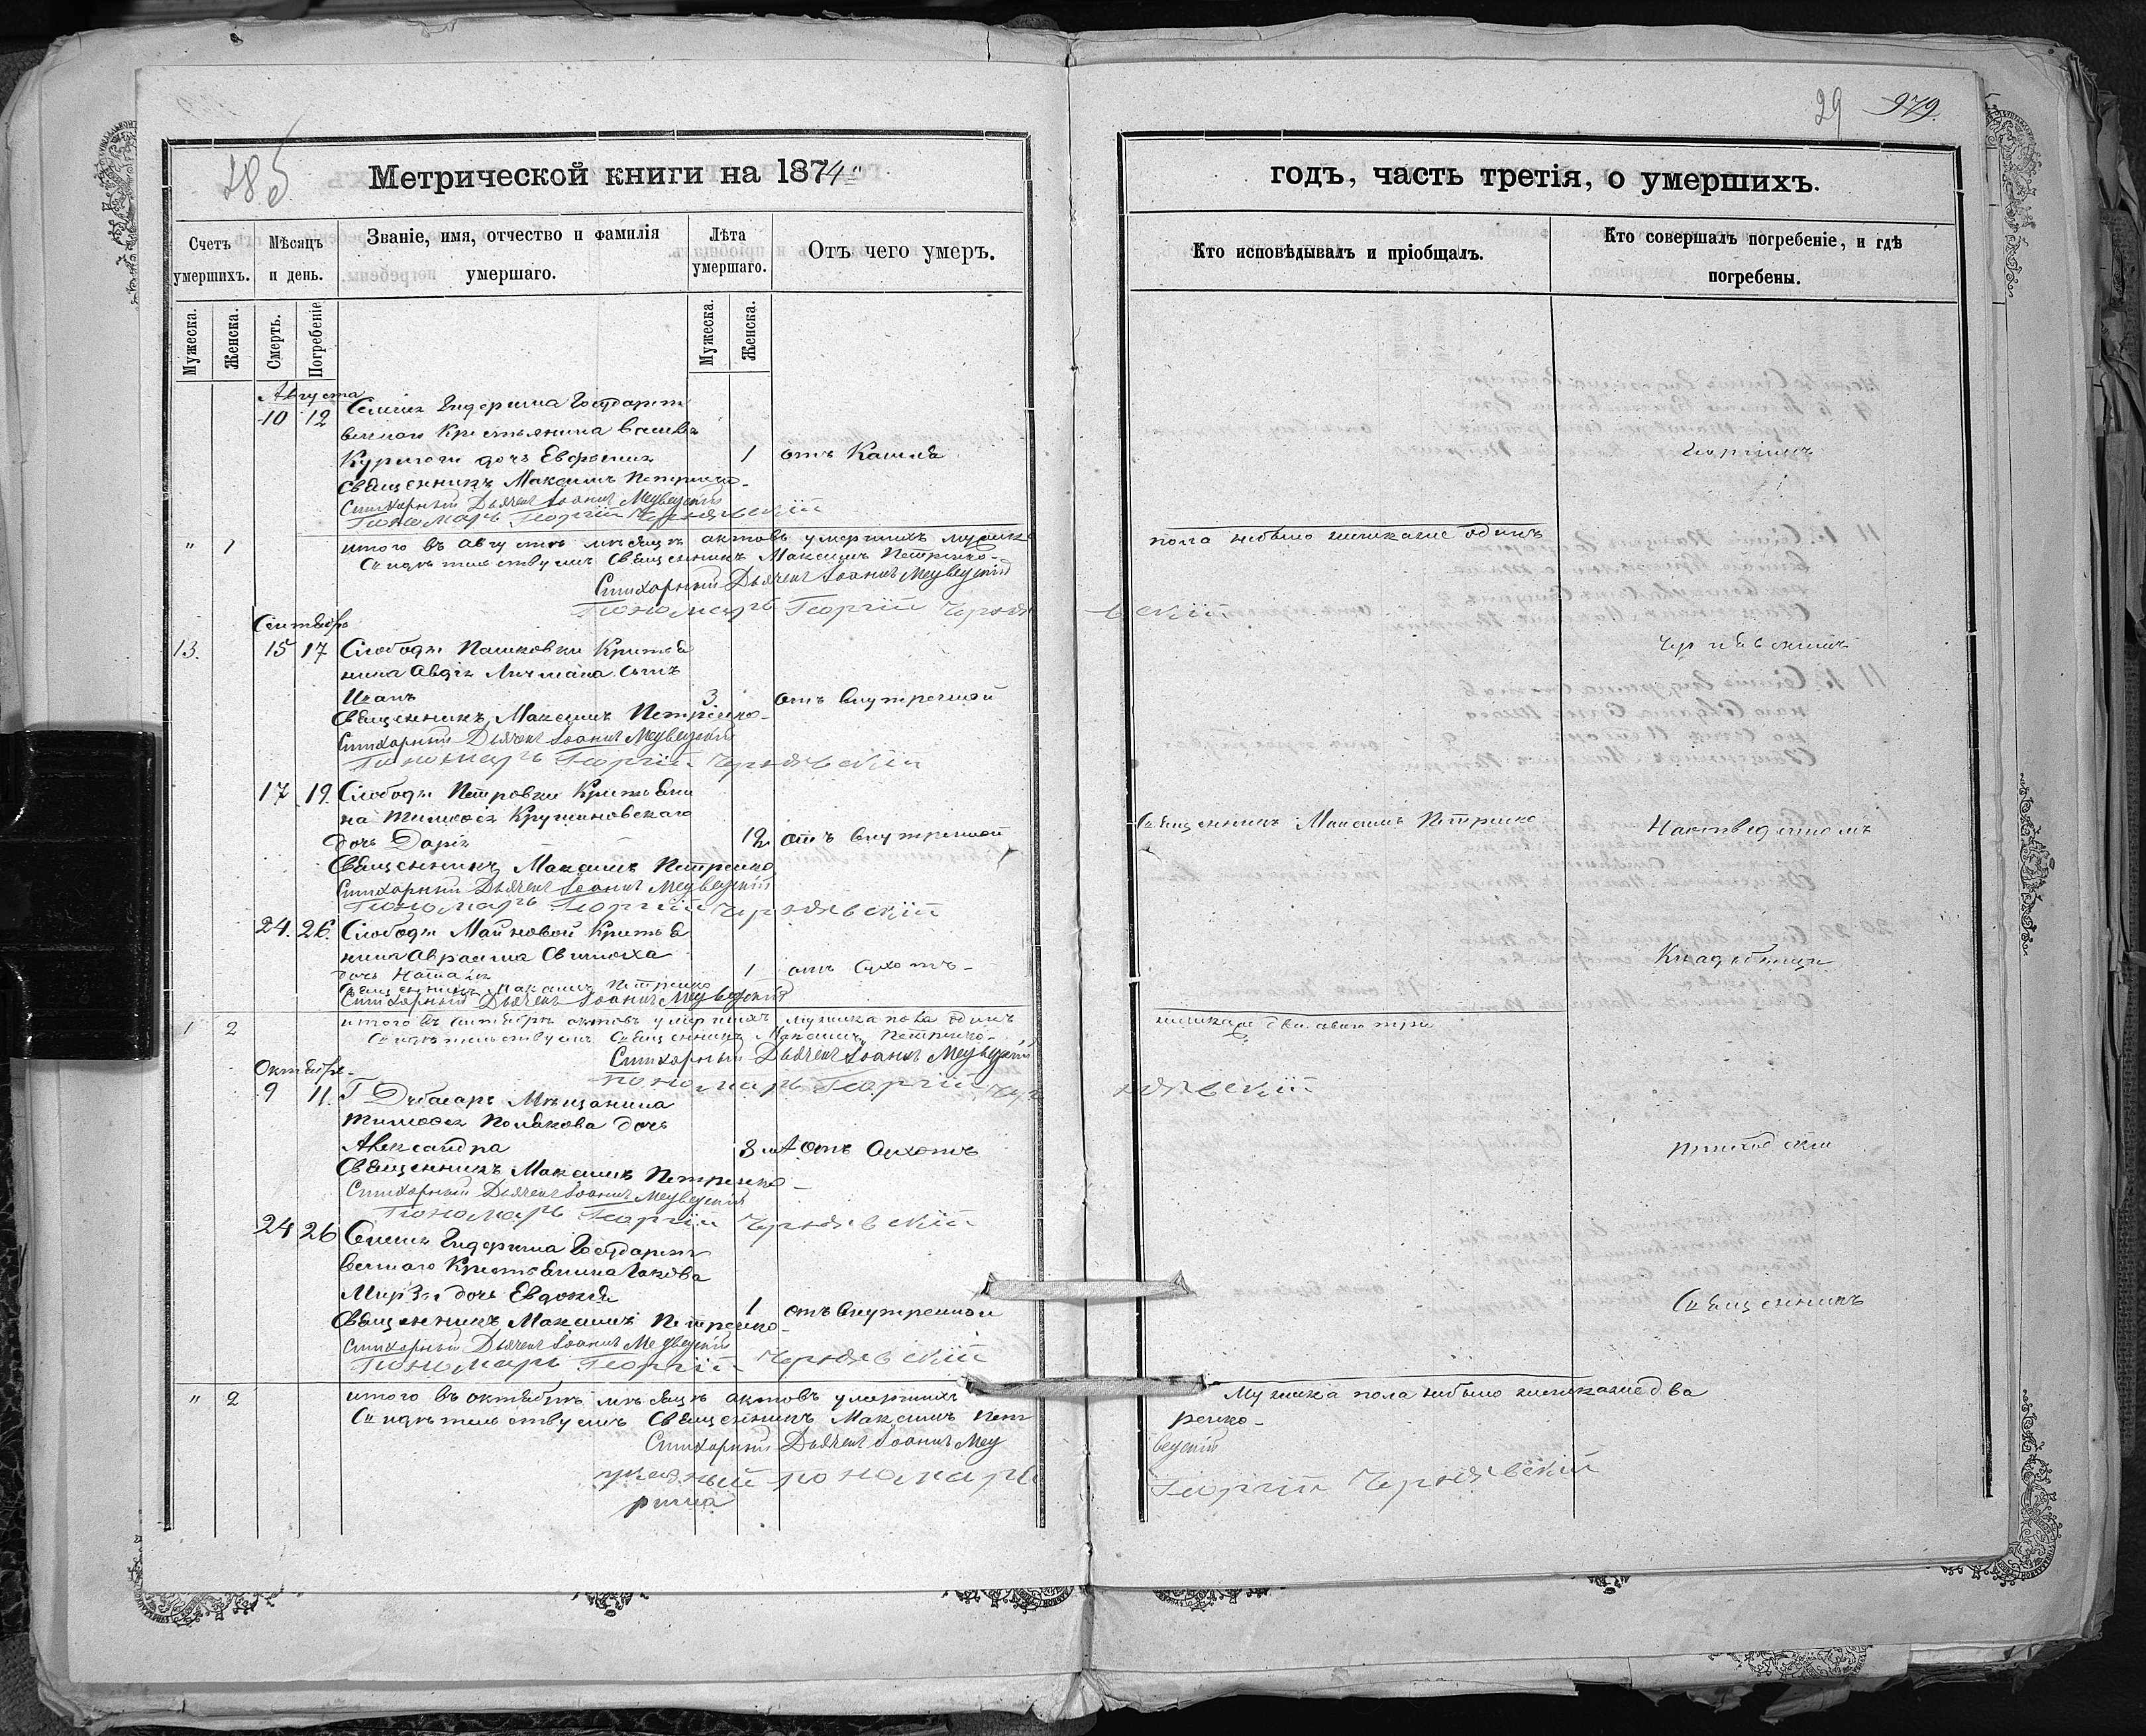 285
Метрической книги на 1874
Счетъ умершихъ.
Мѣсяцъ и день.
Званіе, имя, отчество и фамилія умершаго.
Лѣта умершаго.
Отъ чего умеръ.
Мужеска.
Женска.
Смерть.
Погребеніе
Мужеска
Женска.
Августа
10 12
Государст
веннаго Крестьянина
дочь Евфимія 1 отъ Кашля
Священникъ Максимъ Петренко
Стихарный Дьячекъ Іоаннъ Медведскій
Пономарь Георгій Чернявскій
" 1 итого въ августѣ мѣсяцѣ актовъ умершихъ мужска
Свидѣтельствуемъ Священникъ Максимъ Петренко
Стихарный Дьячекъ Іоаннъ Медведскій
Пономарь Георгій Черня
Сентябрь
13. 15 17 Слободы Пашковки Крестья
нина Авдія Личмана сынъ
Иванъ 3 отъ Внутренной
Священникъ Максимъ Петренко
Стихарный Дьячекъ Іоаннъ Медведскій
Пономарь Георгій Чернявскій
17 19. Слободы Петровки Крестьяни
на Тимофея Кружановскаго
дочь Дарія 12 отъ Внутренной
Священникъ Максимъ Петренко
Стихарный Дьячекъ Іоаннъ Медведскій
Пономарь Георгій Чернявскій
24. 26. Слободы Майновой Крестья
нина Авраама
дочь Наталія 1 отъ Сухотъ
Священникъ Максимъ Петренко
Стихарный Дьячекъ Іоаннъ Медведскій
1 2 итого въ сентябрѣ актовъ умершихъ мужска пола одинъ
Свидѣтельствуемъ Священникъ Максимъ Петренко
Стихарный Дьячекъ Іоаннъ Медведскій
Пономарь Георгій Чер
Октябрь
9 11. Г Дубасаръ Мѣщанина
Тимофея Полякова дочь
Александра 3 отъ Сухотъ
Священникъ Максимъ Петренко
Стихарный Дьячекъ Іоаннъ Медведскій
Пономарь Георгій Чернявскій
24 26 Государст
веннаго Крестьянина Іакова
дочь Евдокія 1 отъ Внутренной
Священникъ Максимъ Петренко
Стихарный Дьячекъ Іоаннъ Медведскій
Пономарь Георгій Чернявскій
" 2 итого въ октябрѣ мѣсяцѣ актовъ умершихъ
Свидѣтельствуемъ Священникъ Максимъ Пет
Стихарный Дьячекъ Іоаннъ Мед
пономарь
29 979.
годъ, часть третія, о умершихъ.
Кто исповѣдывалъ и пріобщалъ.
Кто совершалъ погребеніе, и гдѣ погребены.
Георгіемъ
пола небыло женска одинъ
вскій
Чернявскимъ
Священникъ Максимъ Петренко
женска два всего три
нявскій
Приходскій
Священникъ
Мужска пола небыло женска два
ренко
ведскій
Георгій Чернявскій